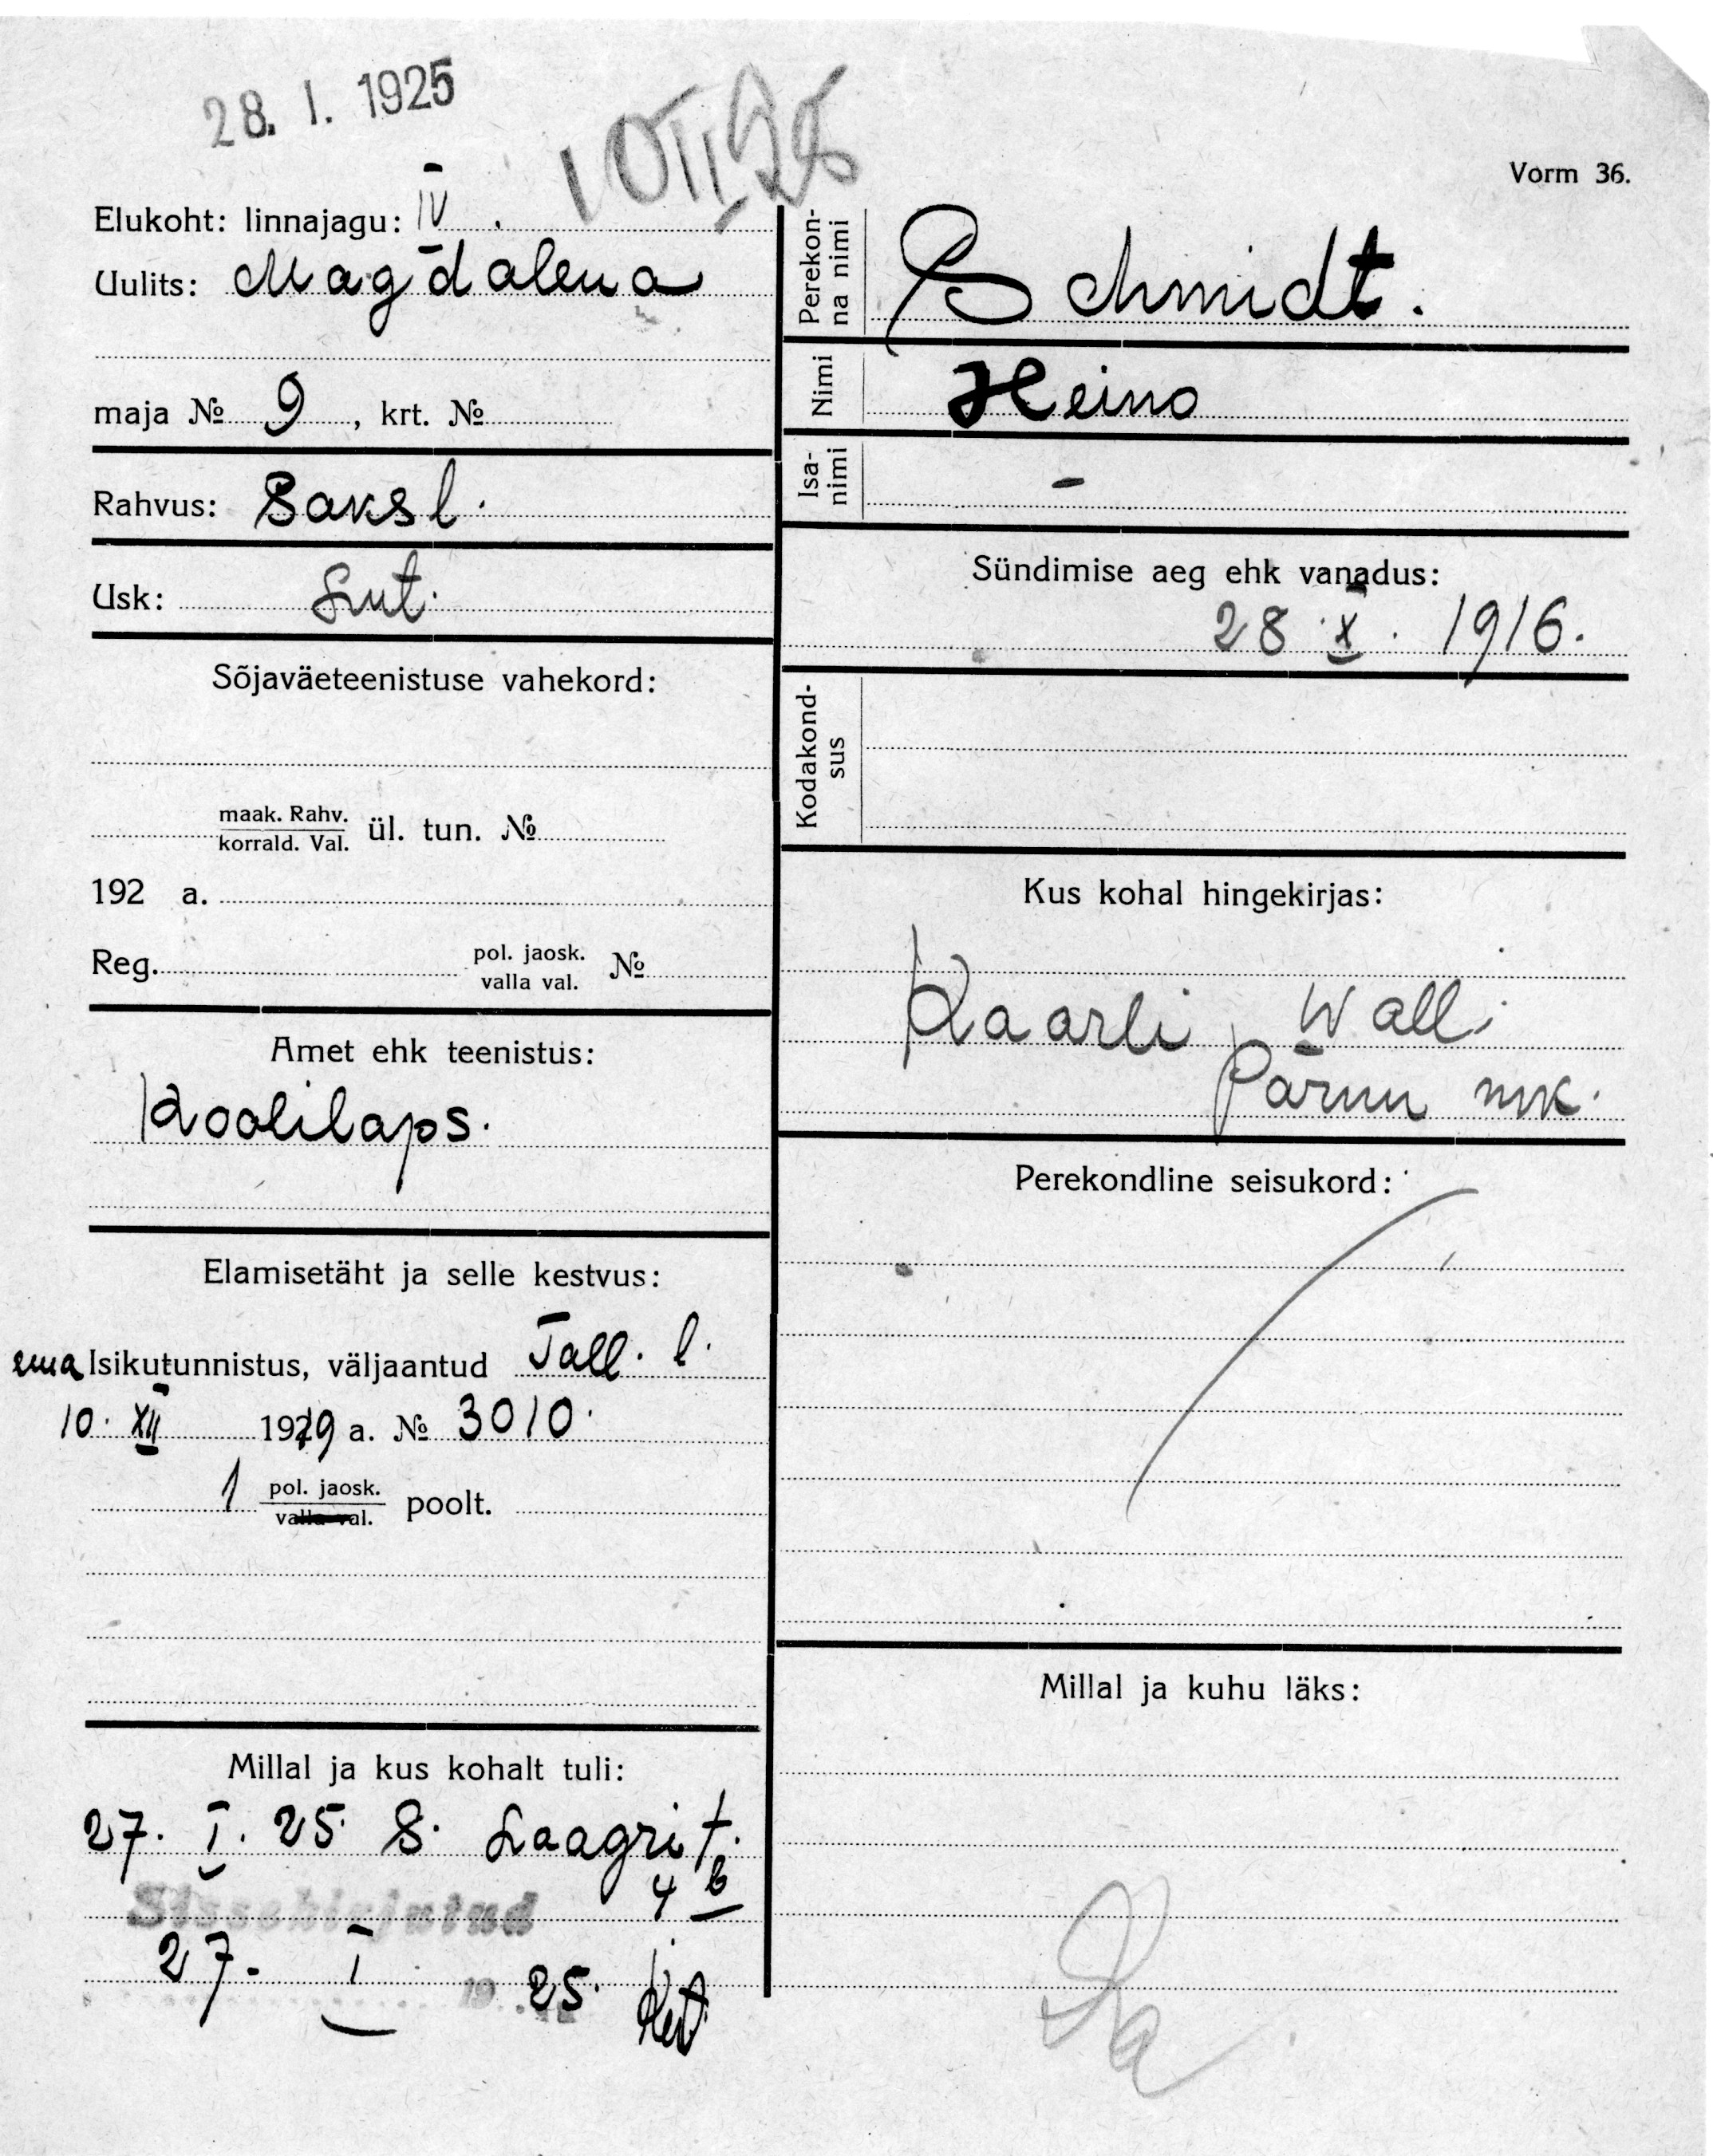 28. I. 1925
10 II 25
Vorm 36.
Elukoht: linnajagu: IV.
Uulits: Magdalena
maja № 9, krt. №
Rahvus: Saksl.
Usk: Lut.
Sõjaväeteenistuse vahekord:
maak. Rahv.
korrald. Val. ül. tun. №
192 a.
Reg. pol. jaosk.
valla val. №
Amet ehk teenistus:
Koolilaps.
Elamisetäht ja selle kestvus:
ema Isikutunnistus, väljaantud Tall. l.
10. XII 1919 a. № 3010.
1 pol. jaosk.
valla val. poolt.
Millal ja kus kohalt tuli:
27. I. 25 S. Laagri t.
4 b
Sissekirjutud
27. I 1925.
Perekon-
na nimi
Schmidt.
Nimi
Heino
Isa-
nimi
-
Sündimise aeg ehk vanadus:
28. X. 1916.
Kodakond-
sus
Kus kohal hingekirjas:
Kaarli wall.
Pärnu mk.
Perekondline seisukord:
Millal ja kuhu läks: